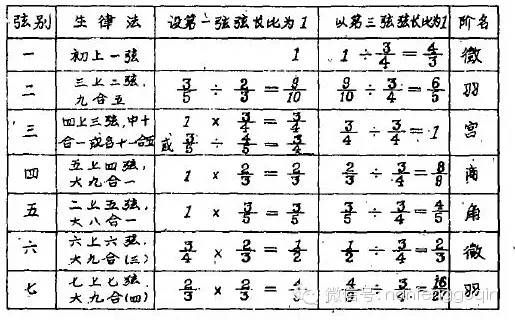 弦别 生律法 设第一弦弦长比为1 以第三弦弦长比为1 阶名
一 初上一弦 1 1÷3/4=4/3 徵
二 三上二弦, 九合五 3/5÷2/3=9/10 9/10÷3/4=6/5 羽
三 四上三弦,中十 1×3/4=3/4 3/4÷3/4=1 宫
合一或名十一合五 或3/5÷4/5=3/4
四 五上四弦, 大九合一 1×2/3=2/3 2/3÷3/4=8/9 商
五 二上五弦, 大八合一 1×3/5=3/5 3/5÷3/4=4/5 角
六 六上六弦, 大九合(三) 3/4×2/3=1/2 1/2÷3/4=2/3 徵
七 七上七弦, 大九合(四) 2/3×2/3=4 4÷3/4=16 羽
微信号: nanfengguqin